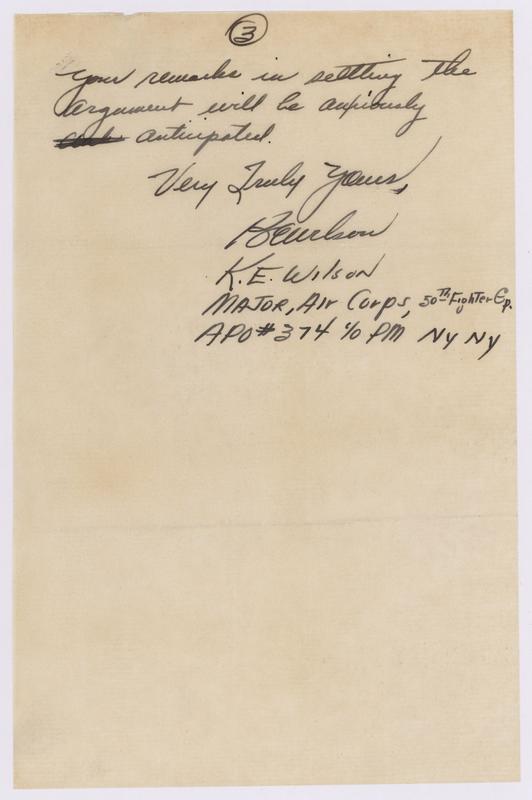 3
your remarks in settling the
argument will be anxiously
anticipated.
Very Truly Yours,
KEWilson
K.E. Wilson
Major, Air Corps, 50th Fighter Gp.
APO #374 c/o PM NY NY